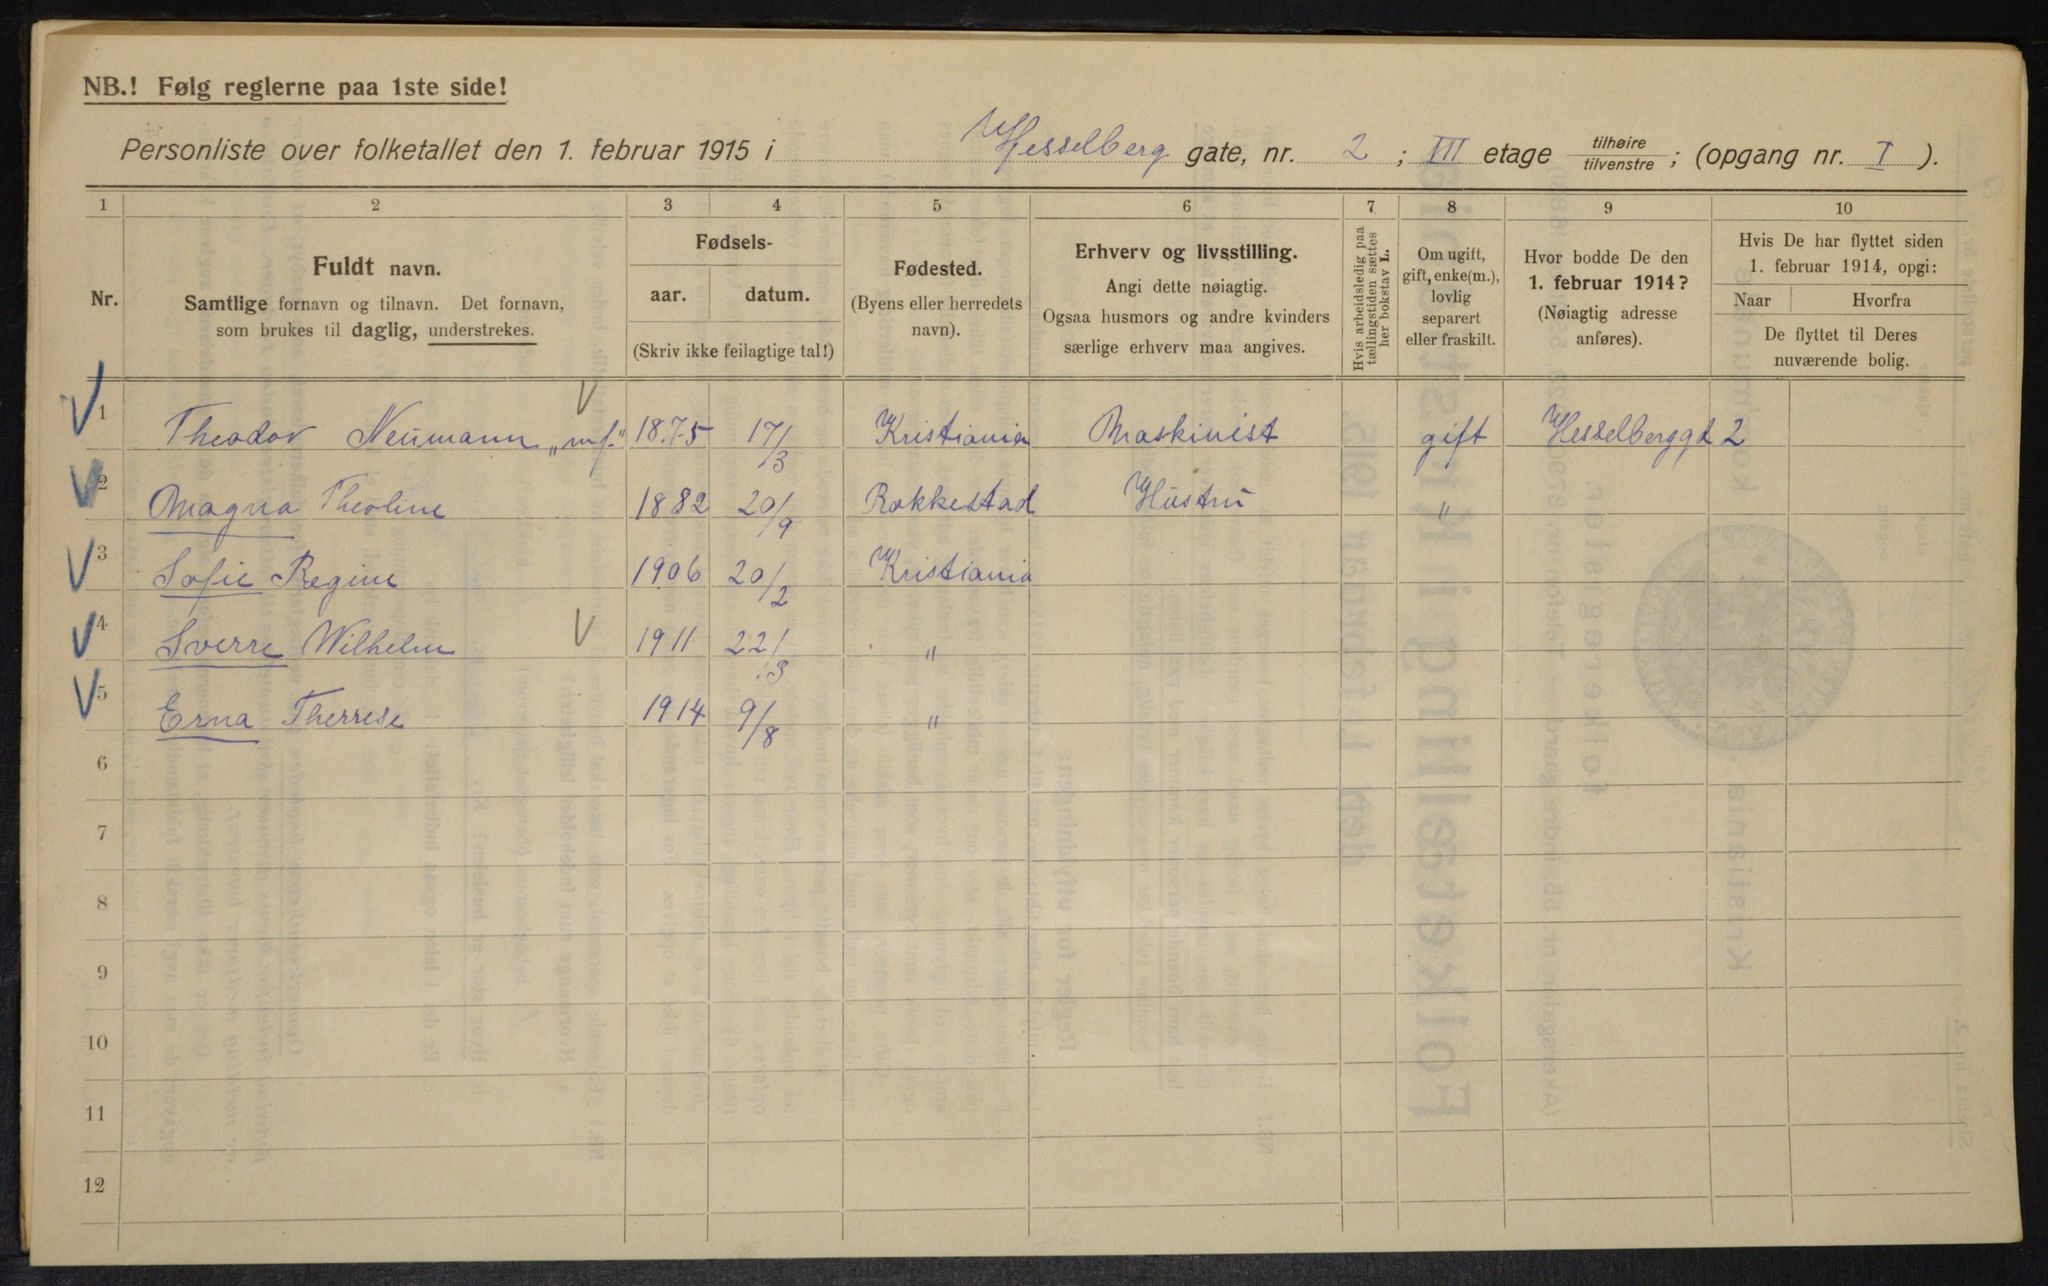 NB.! Følg reglerne paa 1ste side!
Personliste over folketallet den 1. februar 1915 i Hesselberg gate, nr. 2 ; III etage tilhøire / tilvenstre ; (opgang nr. I ).
1 2 3 4 5 6 7 8 9 10
Nr.
Fuldt navn.
Samtlige fornavn og tilnavn. Det fornavn,
som brukes til daglig, understrekes.
Fødsels-
aar. datum.
(Skriv ikke feilagtige tal!)
Fødested.
(Byens eller herredets
navn).
Erhverv og livsstilling.
Angi dette nøiagtig.
Ogsaa husmors og andre kvinders
særlige erhverv maa angives.
Hvis arbeidsledig paa
tællingstiden sættes
her bokstav L.
Om ugift,
gift, enke(m.),
lovlig
separert
eller fraskilt.
Hvor bodde De den
1. februar 1914?
(Nøiagtig adresse
anføres).
Hvis De har flyttet siden
1. februar 1914, opgi:
Naar Hvorfra
De flyttet til Deres
nuværende bolig.
1 Theodor Neumann „mf." 1875 17/3 Kristiania Maskinist gift Hesselberggt 2
2 Magna Theoline 1882 20/9 Rakkestad Hustru "
3 Sofie Regine 1906 20/2 Kristiania
4 Sverre Wilhelm 1911 22/3 "
5 Erna Therrese 1914 9/8 "
6
7
8
9
10
11
12